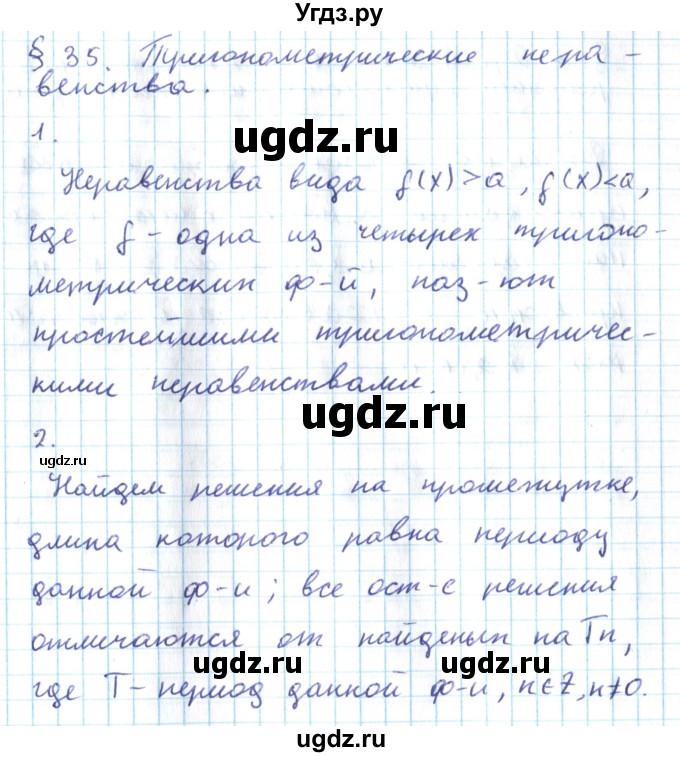 Угдз.ру
§ 35. Тригонометрические нера-
венства.
1.
ugdz.ru
Неравенства вида f(x)>a, f(x)<a,
где f - одна из четырех тригоно-
метрических ф-й, наз-ют
простейшими тригонометричес-
кими неравенствами.
ugdz.ru
2.
ugdz.ru
Найдем решения на промежутке,
длина которого равна периоду
данной ф-и; все ост-е решения
отличаются от найденых на Tn,
ugdz.ru
ugdz.ru
где T - период данной ф-и, n∈Z, n≠0.
ugdz.ru